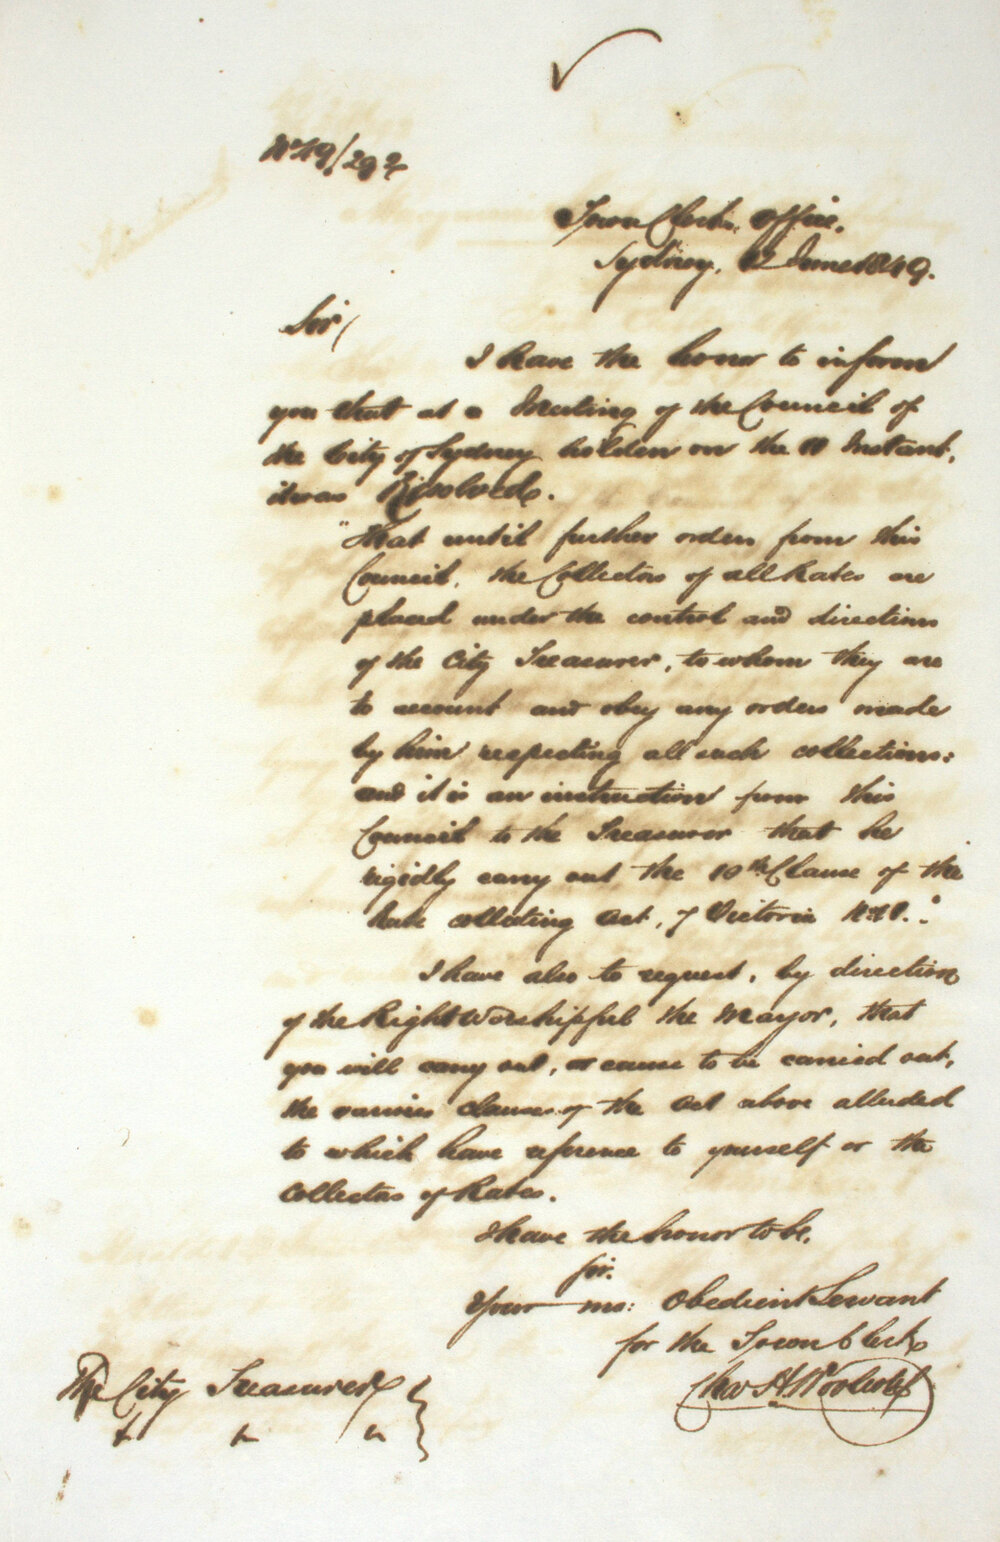 No 49/292
Town Clerk's Office,
Sydney, 12 June 1849.
Sir,
I have the honor to inform
you that at a Meeting of the Council of
the City of Sydney holden on the 11 Instant,
it was Resolved.
"That until further orders from this
Council, the Collectors of all Rates are
placed under the control and direction
of the City Treasurer, to whom they are
to account and obey any orders made
by him respecting all such collections:
and it is an instruction from this
Council to the Treasurer that he
rigidly carry out the 10th Clause of the
Rate collecting Act, 7 Victoria
I have also to request, by direction
of the Right Worshipful the Mayor, that
you will carry out, or cause to be carried out,
the various clauses of the Act above alluded
to which have reference to yourself or the
Collectors of Rates.
I have the honor to be,
Sir.
Your mo: Obedient Servant
for the Town Clerk
Chas H Woolcott
The City Treasurer